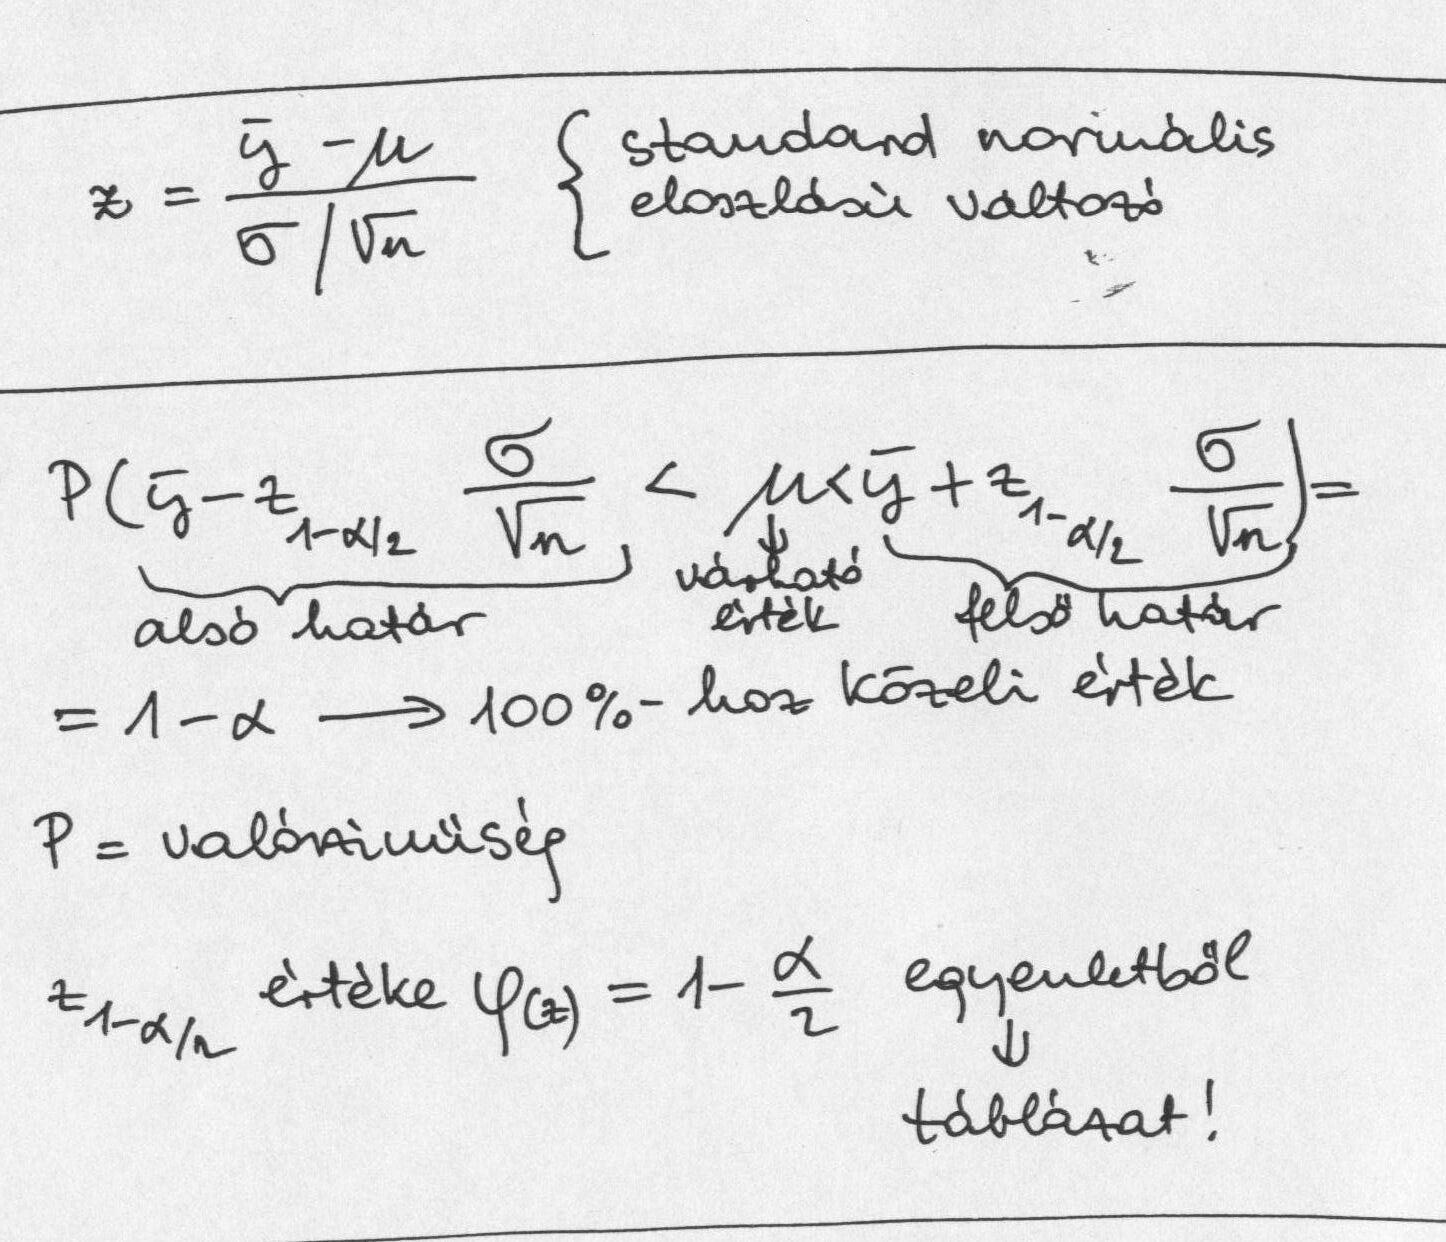 z = (ȳ - μ) / (σ/√n) { standard normális
eloszlású változó
P(ȳ - z_{1-α/2} σ/√n < μ < ȳ + z_{1-α/2} σ/√n) =
alsó határ ↓ várható érték felső határ
= 1 - α → 100%-hoz közeli érték
P = valószínűség
z_{1-α/2} értéke φ(z) = 1 - α/2 egyenletből
↓
táblázat!